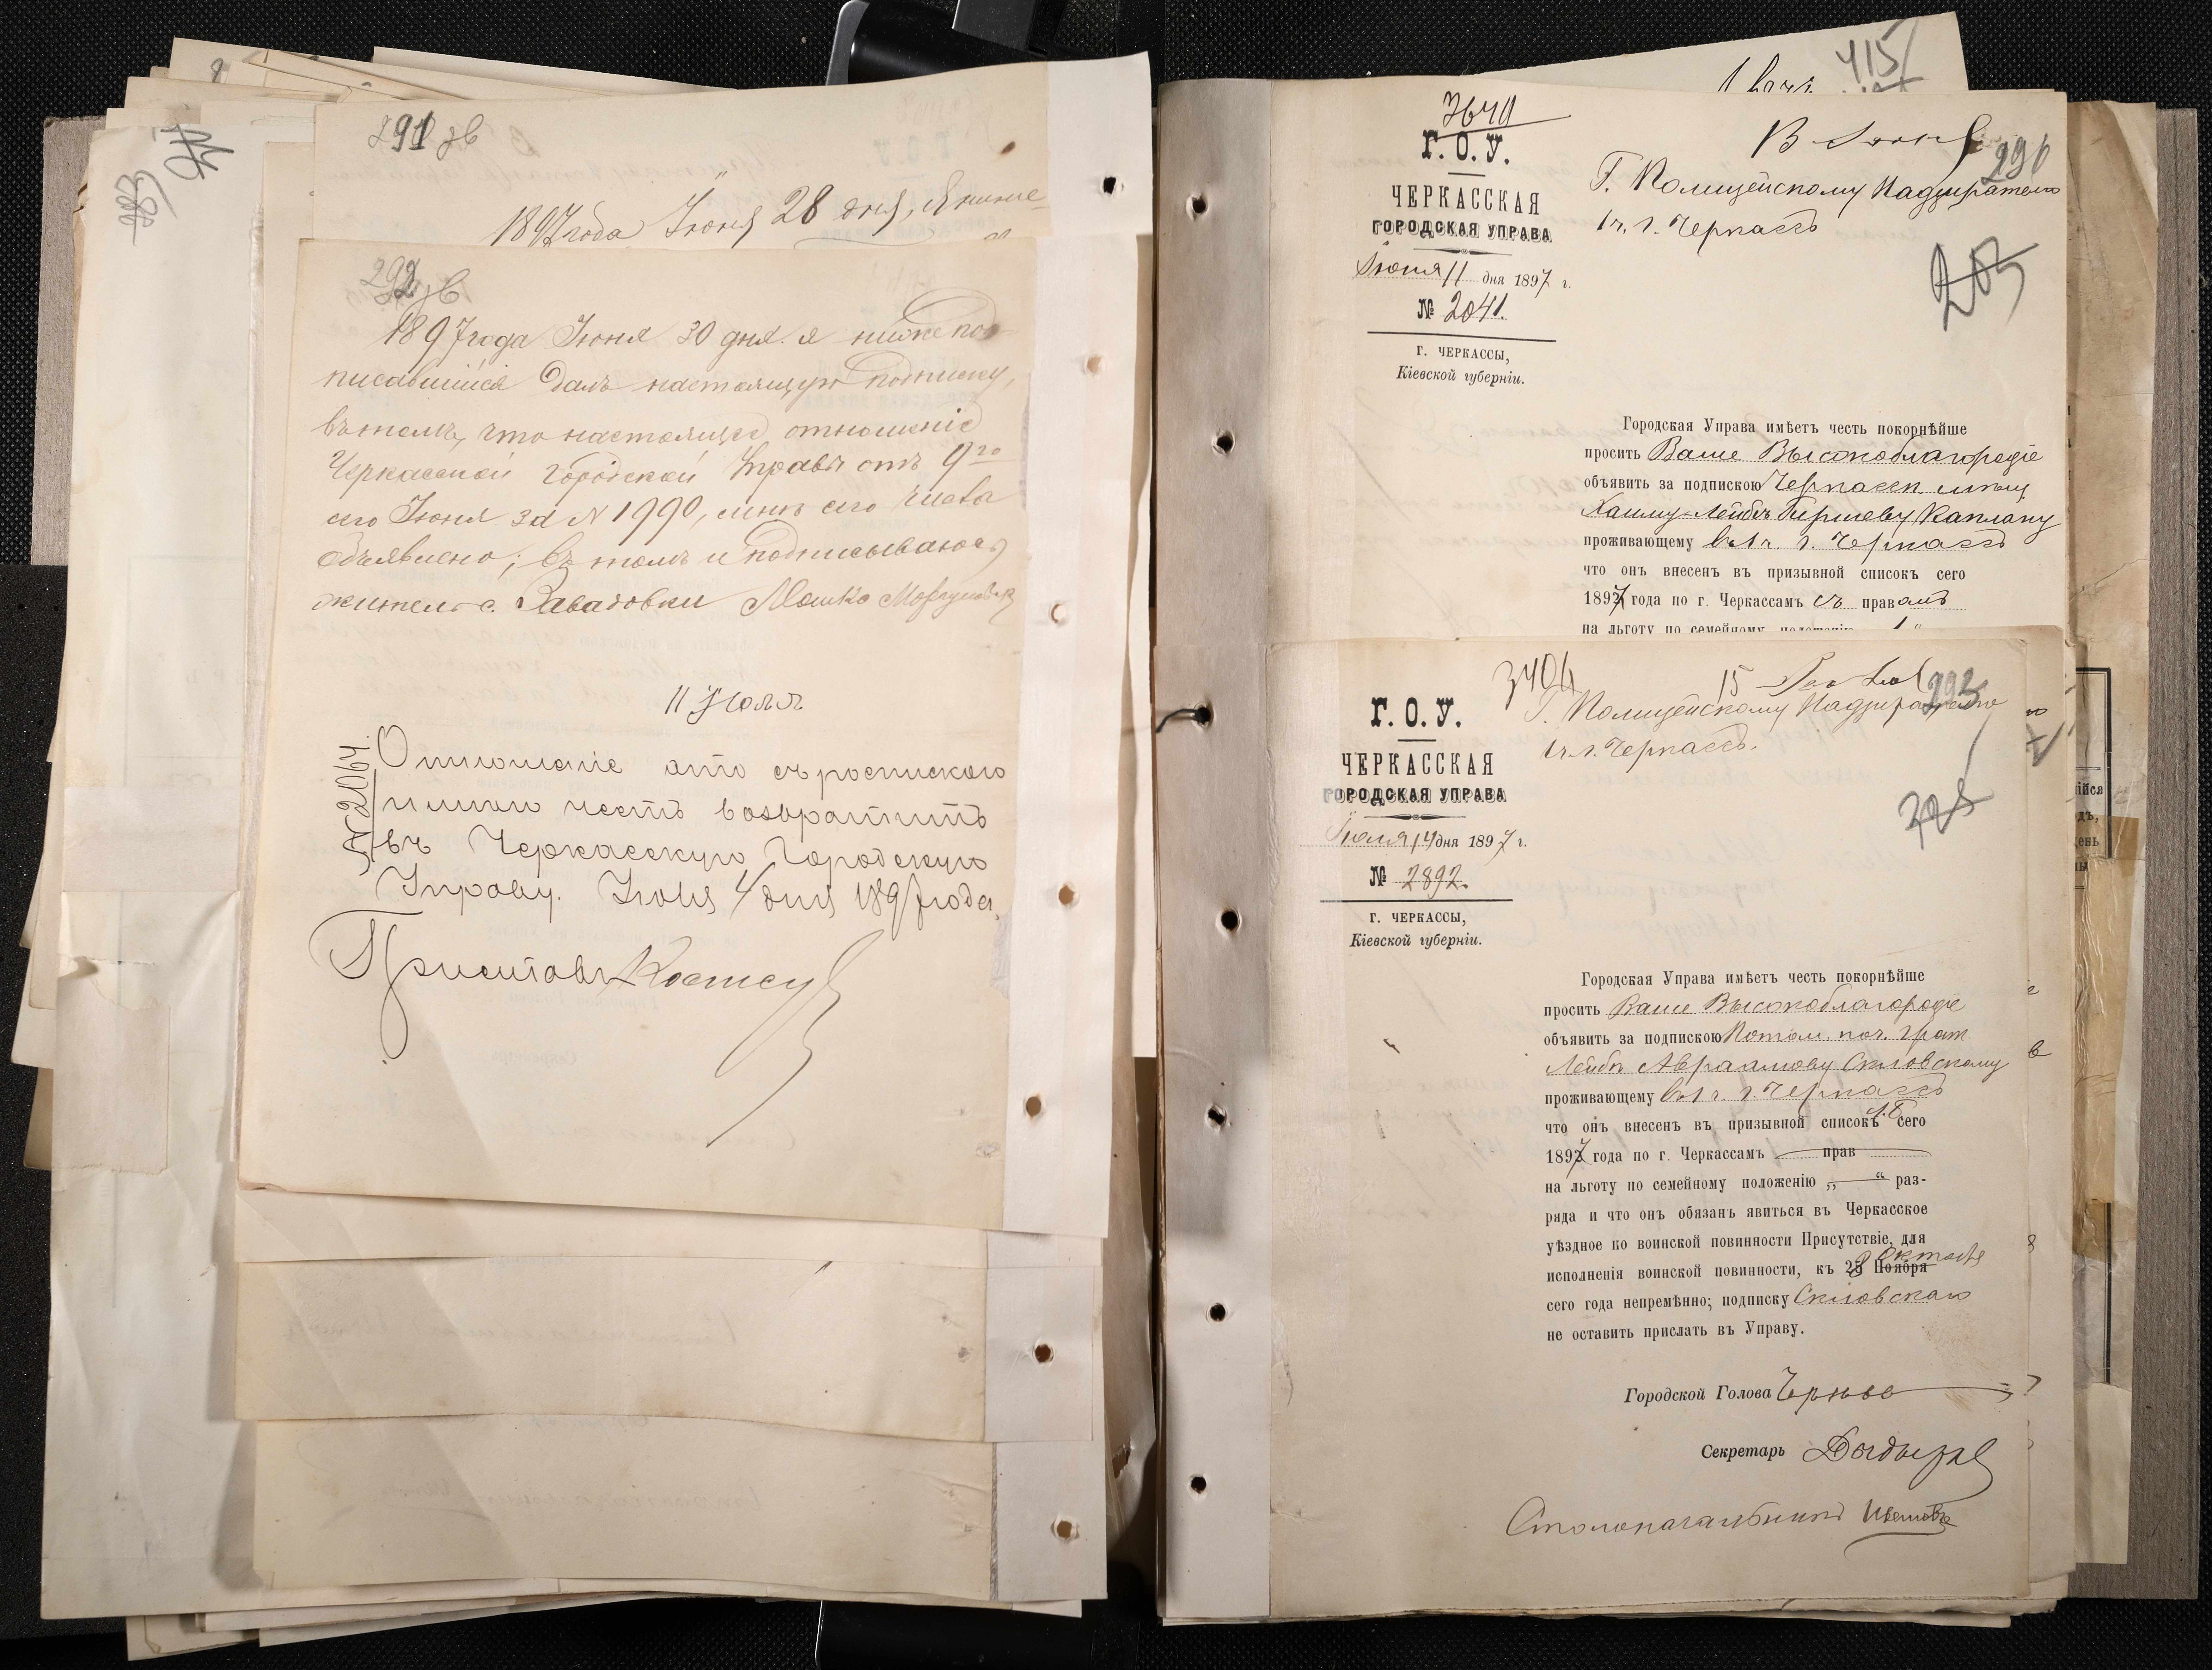 291 зв
1897 года Іюня 28 дня, я ниже
292 зв
1897 года Іюня 30 дня. я нижепод-
писавшійся далъ настоящую подписку,
въ томъ, что настоящее отношеніе
Черкасской Городской Управы отъ 9го
сего Іюня за № 1990, мнѣ сего числа
объявлено; въ томъ и подписываюсь
житель с. Завадовки Мошко
11 Іюля
№ 2064.
Отношеніе это съ роспискою
имѣю честь возвратить
въ Черкасскую Городскую
Управу. Іюля 4 дня 1897 года.
Приставъ
415
3640
Г. О. У.
ЧЕРКАССКАЯ
ГОРОДСКАЯ УПРАВА
Іюня 11 дня 1897 г.
№ 2041.
Г. ЧЕРКАССЫ,
Кіевской губерніи.
13 Іюня
290
Г. Полицейскому Надзирателю
1 ч. г. Черкассъ
Городская Управа имѣетъ честь покорнѣйше
просить Ваше Высокоблагородіе
объявить за подпискою Черкасск. мѣщ
Хаиму-Лейбѣ Гершеву Каплану
проживающему въ 1 ч. г. Черкассъ
что онъ внесенъ въ призывной списокъ сего
1897 года по г. Черкассамъ съ правомъ
на льготу по семейному положенію 1"
3404
15
293
Г. О. У.
ЧЕРКАССКАЯ
ГОРОДСКАЯ УПРАВА
Іюля 14 дня 1897 г.
№ 2892.
Г. ЧЕРКАССЫ,
Кіевской губерніи.
Г. Полицейскому Надзирателю
1 ч. г. Черкассъ.
Городская Управа имѣетъ честь покорнѣйше
просить Ваше Высокоблагородіе
объявить за подпискою Потом. поч. граж
Лейбѣ Авраамову Скловскому
проживающему въ 1 ч. г. Черкассъ
что онъ внесенъ въ призывной списокъ сего
1897 года по г. Черкассамъ — прав —
на льготу по семейному положенію „ — “ раз-
ряда и что онъ обязанъ явиться въ Черкасское
уѣздное по воинской повинности Присутствіе, для
исполненія воинской повинности, къ 28 Ноября Октября
сего года непремѣнно; подписку Скловскаго
не оставить прислать въ Управу.
Городской Голова
Секретарь
Столоначальникъ